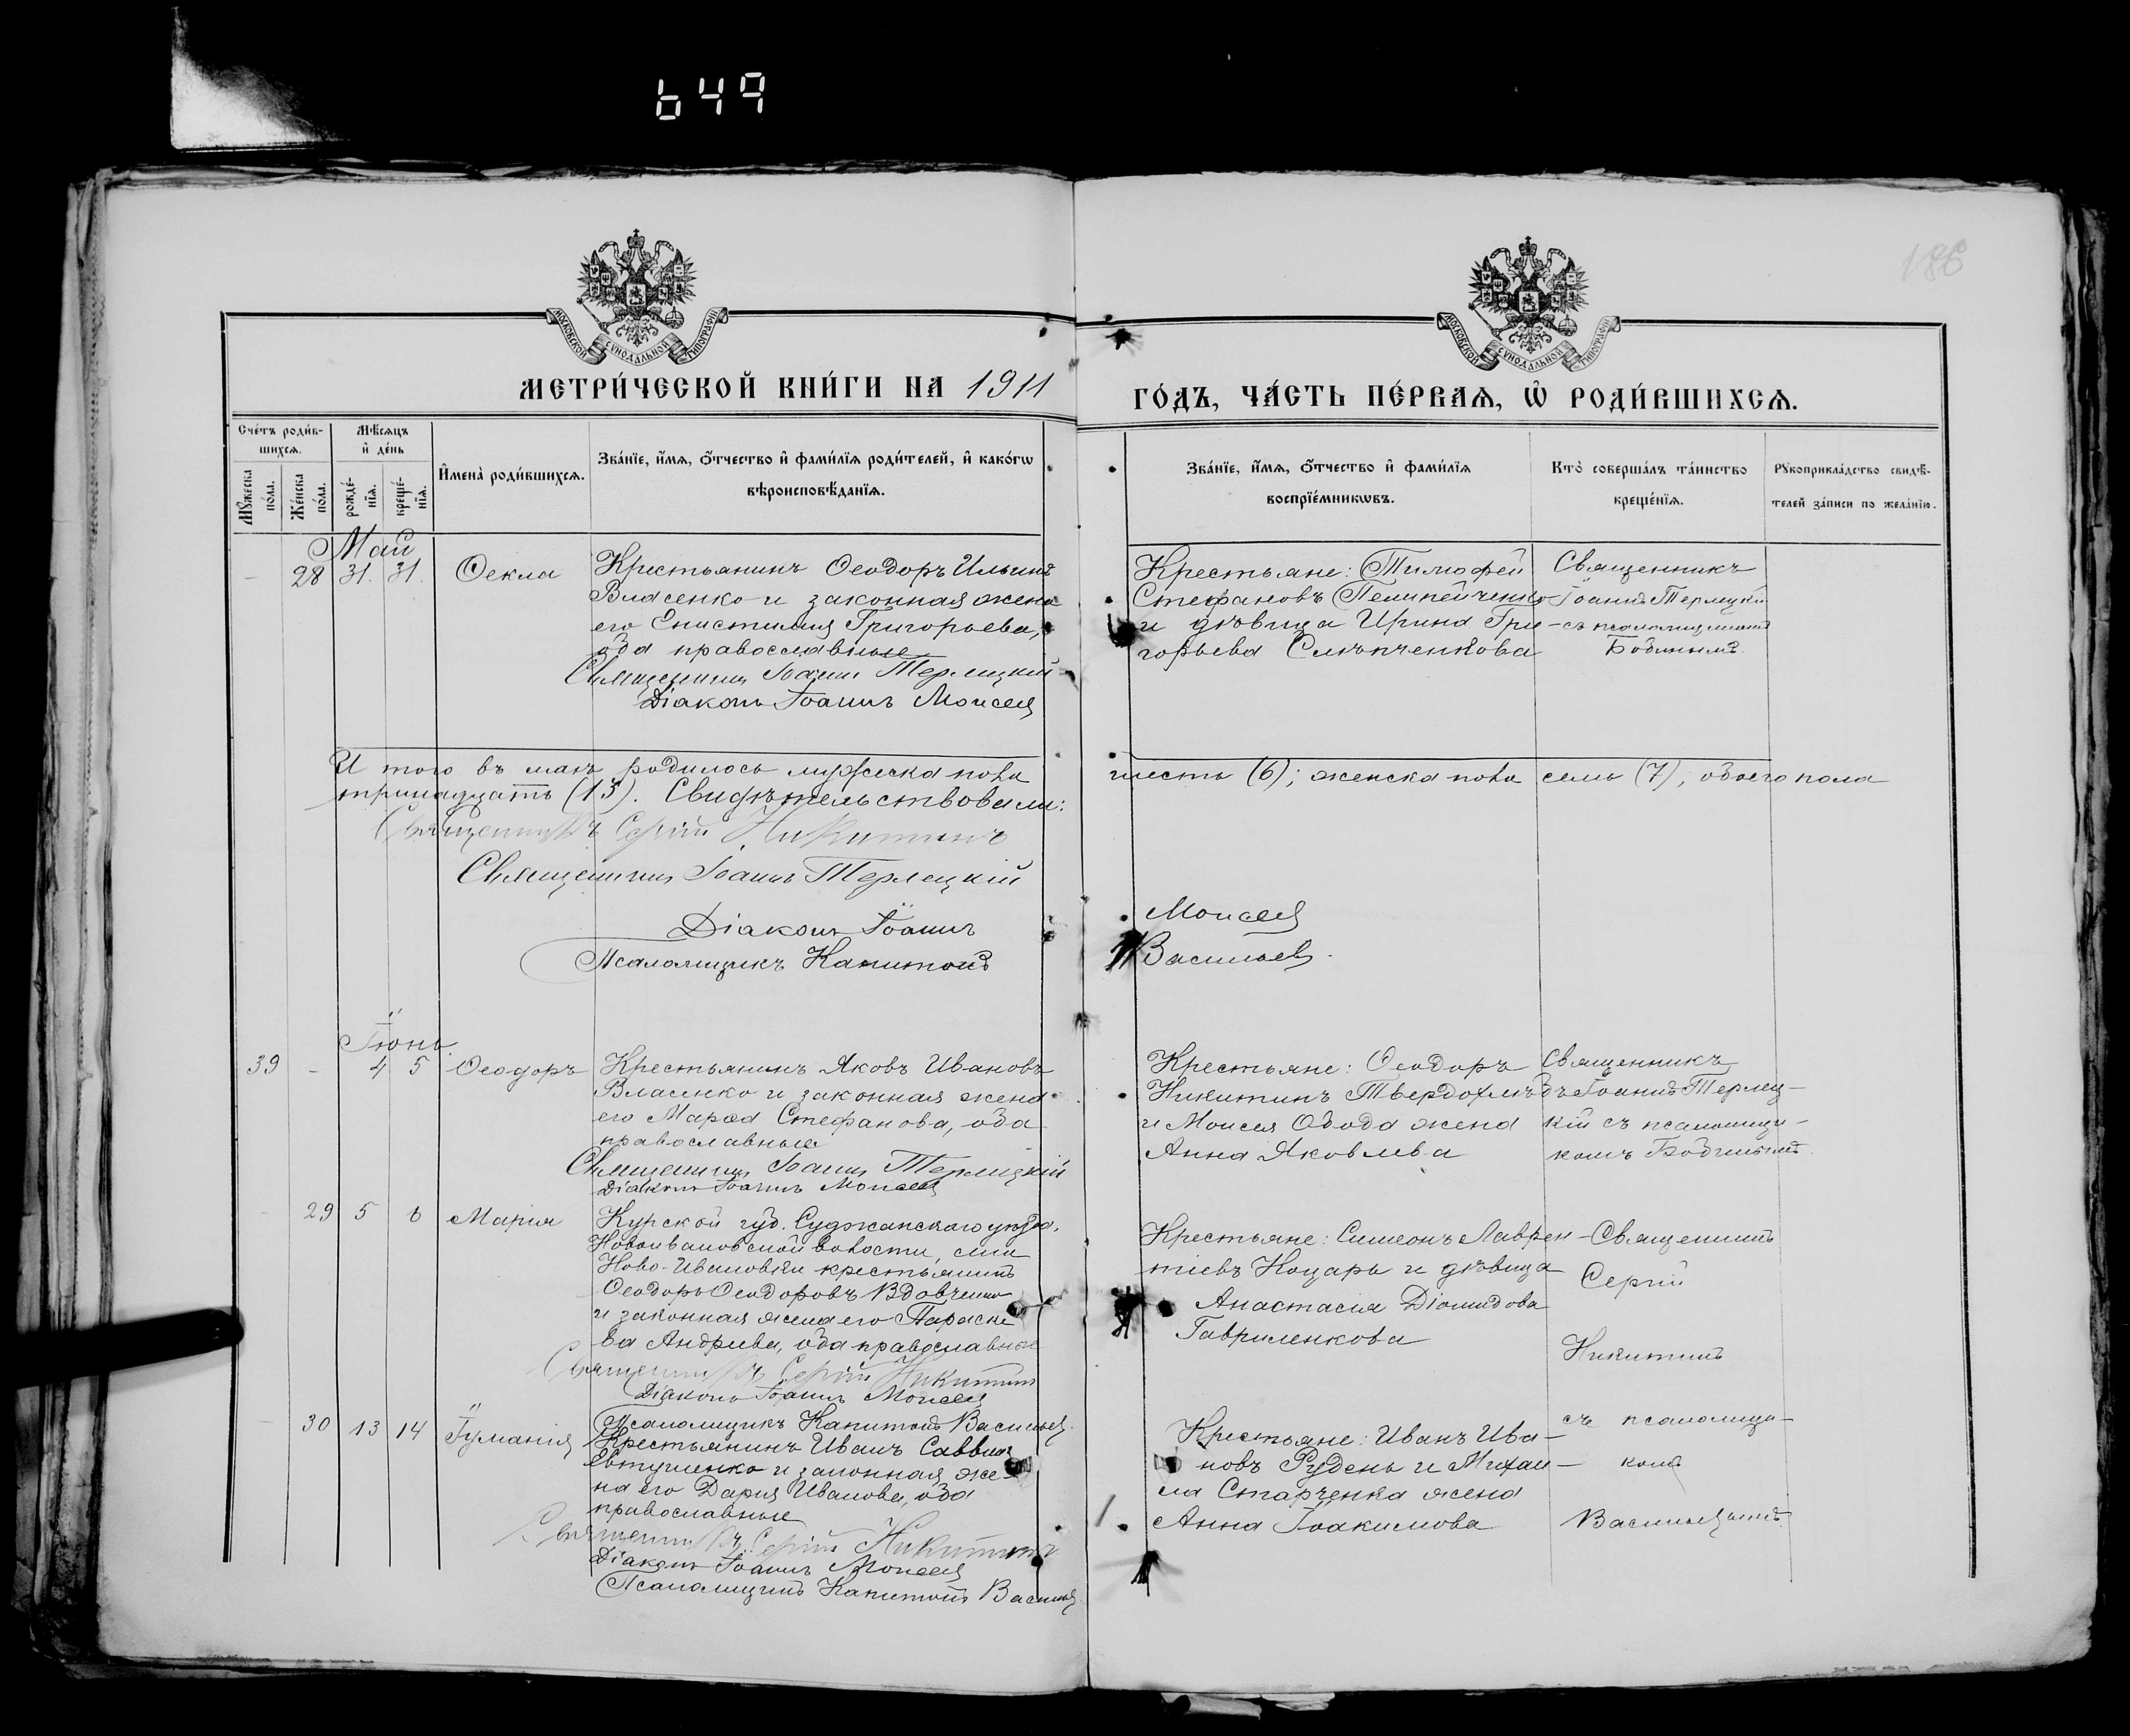 649
186
МОСКОВСКОЙ СУНОДАЛЬНОЙ ТИПОГРАФІИ
МОСКОВСКОЙ СУНОДАЛЬНОЙ ТИПОГРАФІИ
МЕТРИ́ЧЕСКОЙ КНИ́ГИ НА 1911
ГО́ДЪ, ЧА́СТЬ ПЕ́РВАѦ, Ѡ҆ РОДИ́ВШИХСѦ.
Сче́тъ роди́вшихсѧ.
Мꙋ́жеска по́ла.
Же́нска по́ла.
Мѣ́сѧцъ и҆ де́нь
рожде́нїѧ.
креще́нїѧ.
И҆мена̀ роди́вшихсѧ.
Зва́нїе, и҆́мѧ, ѻ҆́тчество и҆ фами́лїѧ роди́телей, и҆ како́гѡ
вѣроисповѣ́данїѧ.
Зва́нїе, и҆́мѧ, ѻ҆́тчество и҆ фами́лїѧ
воспрїе́мникѡвъ.
Кто̀ соверша́лъ та́инство
креще́нїѧ.
Рꙋкоприкла́дство свидѣ́-
телей за́писи по жела́нїю.
Май
- 28 31. 31. Ѳекла
Крестьянинъ Ѳеодоръ Ильинъ
Власенко и законная жена
его Григорьева,
оба православные
Священникъ Іоаннъ Терлецкій
Діаконъ Іоаннъ Моисеев
Крестьяне: Тимофей
Стефановъ Пелипейченко
и дѣвица Ирина Гри-
горьева Слѣпченкова
Священникъ
Іоаннъ Терлецкій
съ псаломщикомъ
Бодинымъ.
И того въ маѣ родилось мужеска пола шесть (6); женска пола семь (7), обоего пола
тринадцать (13). Свидѣтельствовали:
Священникъ Сергій Никитинъ
Священникъ Іоаннъ Терлецкій
Діаконъ Іоаннъ Моисеев
Псаломщикъ Капитонъ Васильев
Іюнь.
39 - 4 5 Ѳеодоръ
Крестьянинъ Яковъ Ивановъ
Власенко и законная жена
его Марѳа Стефанова, оба
православные
Священникъ Іоаннъ Терлецкій
Діаконъ Іоаннъ Моисеев
Крестьяне: Ѳеодоръ
Никитинъ Твердохлѣбъ
и Моисея Обода жена
Анна Яковлева
Священникъ
Іоаннъ Терлец-
кій съ псаломщи-
комъ Бодинымъ.
- 29 5 6 Марія
Курской губ. Суджанскаго уѣзда,
Новоивановской волости, села
Ново-Ивановки крестьянинъ
Ѳеодоръ Ѳеодоровъ Вдовченко
и законная жена его Параске
ва Андреева, оба православные
Священникъ Сергій Никитинъ
Діаконъ Іоаннъ Моисеев
Псаломщикъ Капитонъ Васильев.
Крестьяне: Симеонъ Лаврен-
тіевъ Коцарь и дѣвица
Анастасія Діомидова
Гавриленкова
Священникъ
Сергій
Никитинъ
съ псаломщи-
комъ
Васильевымъ.
- 30 13 14 Іуманія
Крестьянинъ Иванъ Саввинъ
Евтушенко и законная же-
на его Дарія Иванова, оба
православные
Священникъ Сергій Никитинъ
Діаконъ Іоаннъ Моисеев
Псаломщикъ Капитонъ Васильев
Крестьяне: Иванъ Ива-
новъ Рудень и Михаи-
ла Старченка жена
Анна Іоакимова